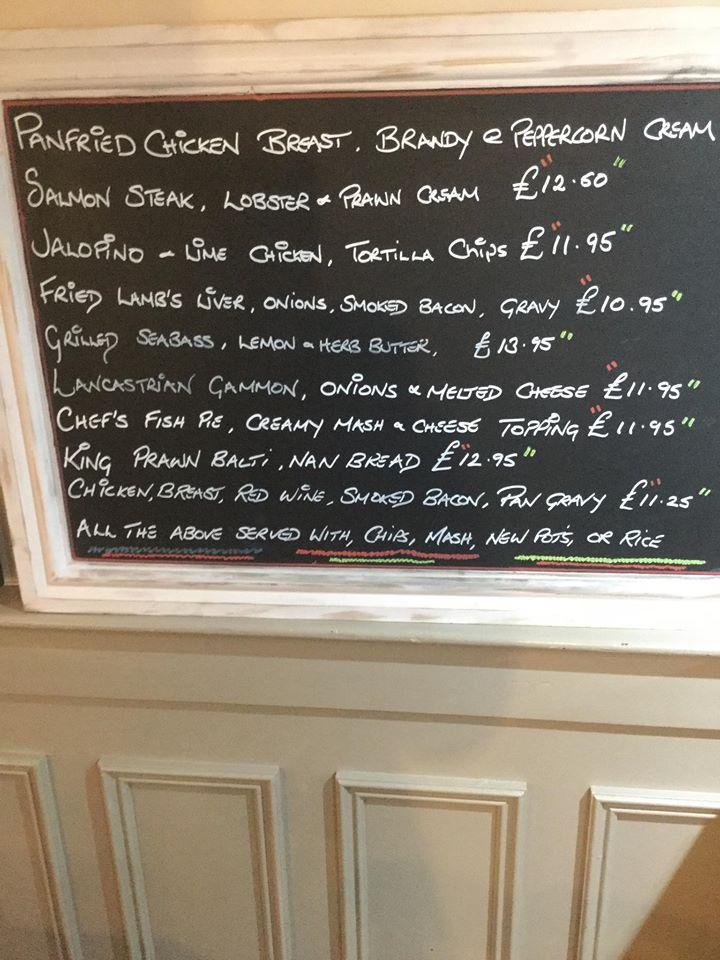 PANFRIED CHICKEN BREAST. BRANDY & PEPPERCORN CREAM
SALMON STEAK, LOBSTER & PRAWN CREAM £"12.60"
JALOPINO & LIME CHICKEN, TORTILLA CHIPS £"11.95"
FRIED LAMB'S LIVER, ONIONS, SMOKED BACON, GRAVY £"10.95"
GRILLED SEABASS, LEMON & HERB BUTTER, £13.95"
LANCASTRIAN GAMMON, ONIONS & MELTED CHEESE £"11.95"
CHEF'S FISH PIE, CREAMY MASH & CHEESE TOPPING £"11.95"
KING PRAWN BALTI, NAN BREAD £"12.95"
CHICKEN, BREAST, RED WINE, SMOKED BACON, PAN GRAVY £"11.25"
ALL THE ABOVE SERVED WITH, CHIPS, MASH, NEW POT'S, OR RICE